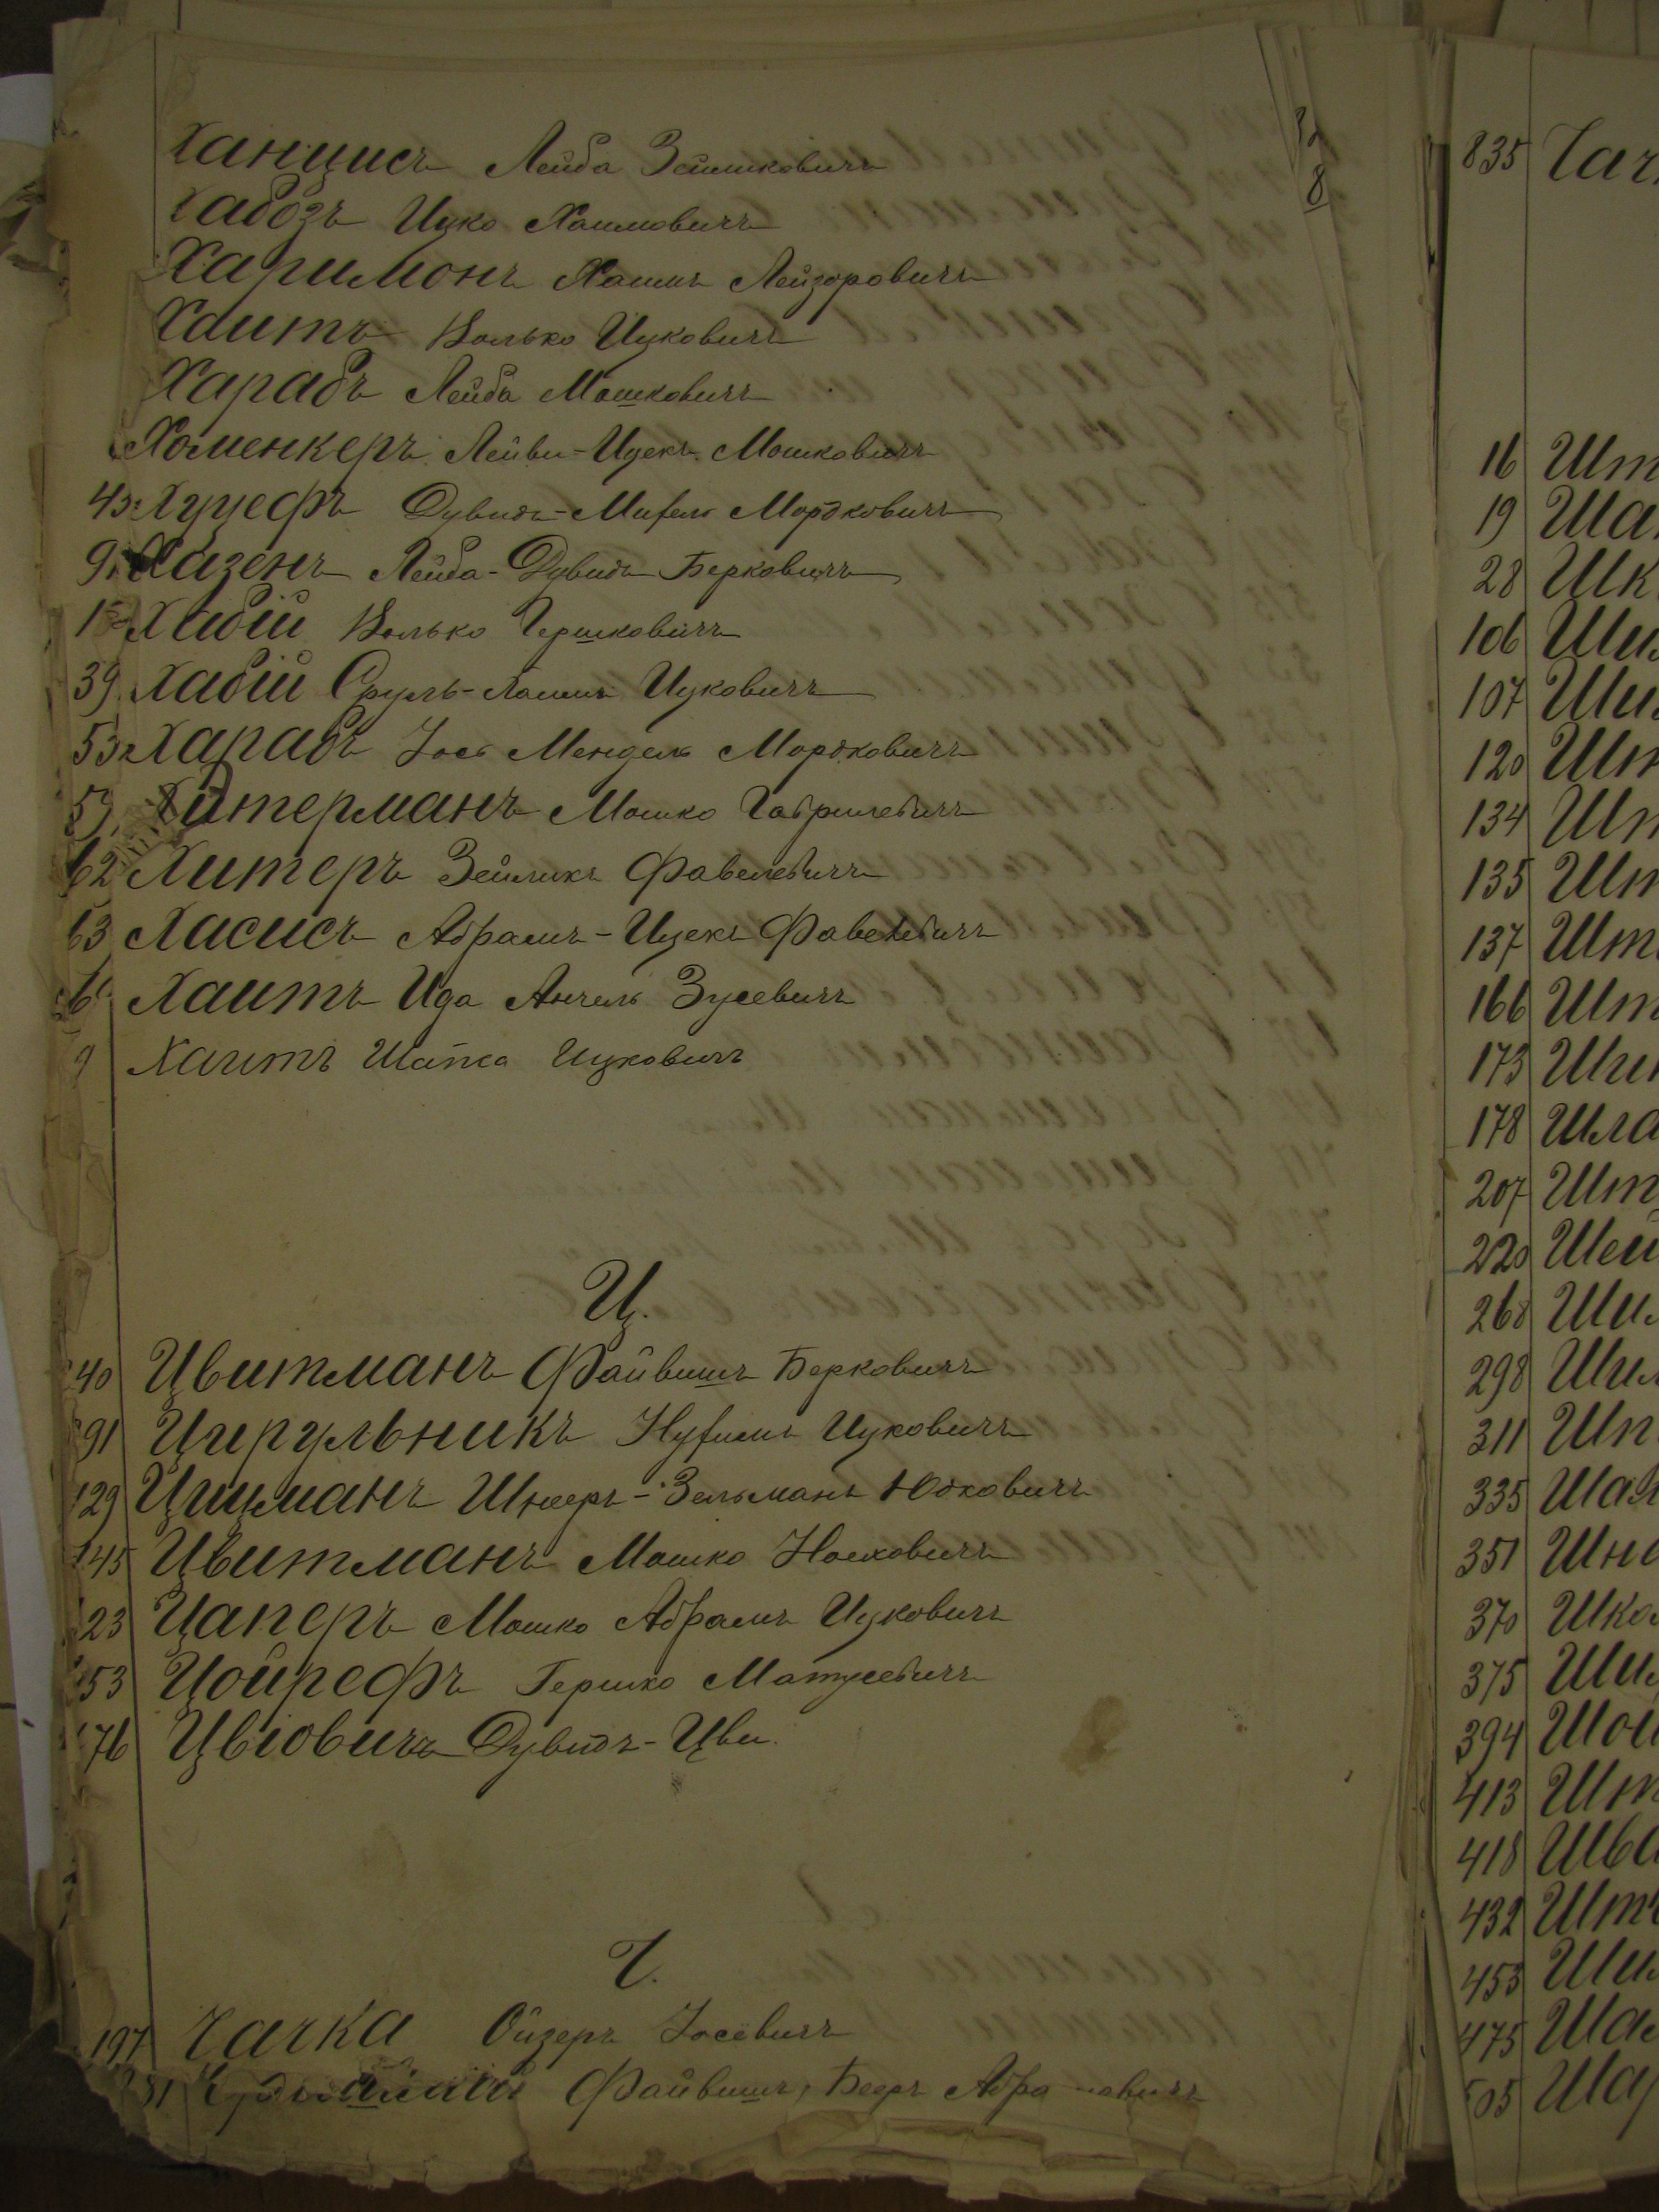 Ханцисъ Лейба Зейликовичъ
Хабозъ Ицко Хаимовичъ
Харимонъ Хаимъ Лейзоровичъ
Хаитъ Волько Ицковичъ
Харабъ Лейба Мошковичъ
Хоменкеръ Лейви-Ицекъ Мошковичъ
43 Хуреф​ъ Дувидъ-Михель Мордковичъ
9 Хазенъ Лейба-Дувидъ Берковичъ
1 Хабій Волько Гершковичъ
39 Хабій Сруль-Хаимъ Ицковичъ
53 Харабъ Іось Мендель Мордковичъ
5 Хитерманъ Мошко Гаврилевичъ
62 Хитеръ Зейликъ Фавелевичъ
63 Хасисъ Абрамъ-Ицекъ Фавелевичъ
6 Хаитъ Ида Анчель Зусевичъ
9 Хаитъ Шапса Ицковичъ
Ц.
40 Цвитманъ Файвишъ Берковичъ
91 Цирульникъ Нухимъ Ицковичъ
129 Цицманъ Шнееръ-Зельманъ Юдковичъ
145 Цвитманъ Мошко Носковичъ
23 Цаперъ Мошко Абрамъ Ицковичъ
53 Цойрефъ Гершко Матусевичъ
76 Цвіовичъ Дувидъ-Цви.
Ч.
197 Чачка Ойзеръ Іосевичъ
31 Файвишъ, Бееръ Абрамовичъ
32
8
835 Чач
16 Шт
19 Ша
28 Шк
106 Ши
107 Ши
120 Шт
134 Шт
135 Шт
137 Шт
166 Шт
173 Ши
178 Шла
207 Шт
220 Шей
268 Ши
298 Ши
311 Шп
335 Ша
351 Шн
370 Шко
375 Ши
394 Шой
413 Шт
418 Шва
432 Шт
453 Ши
475 Ша
505 Шар